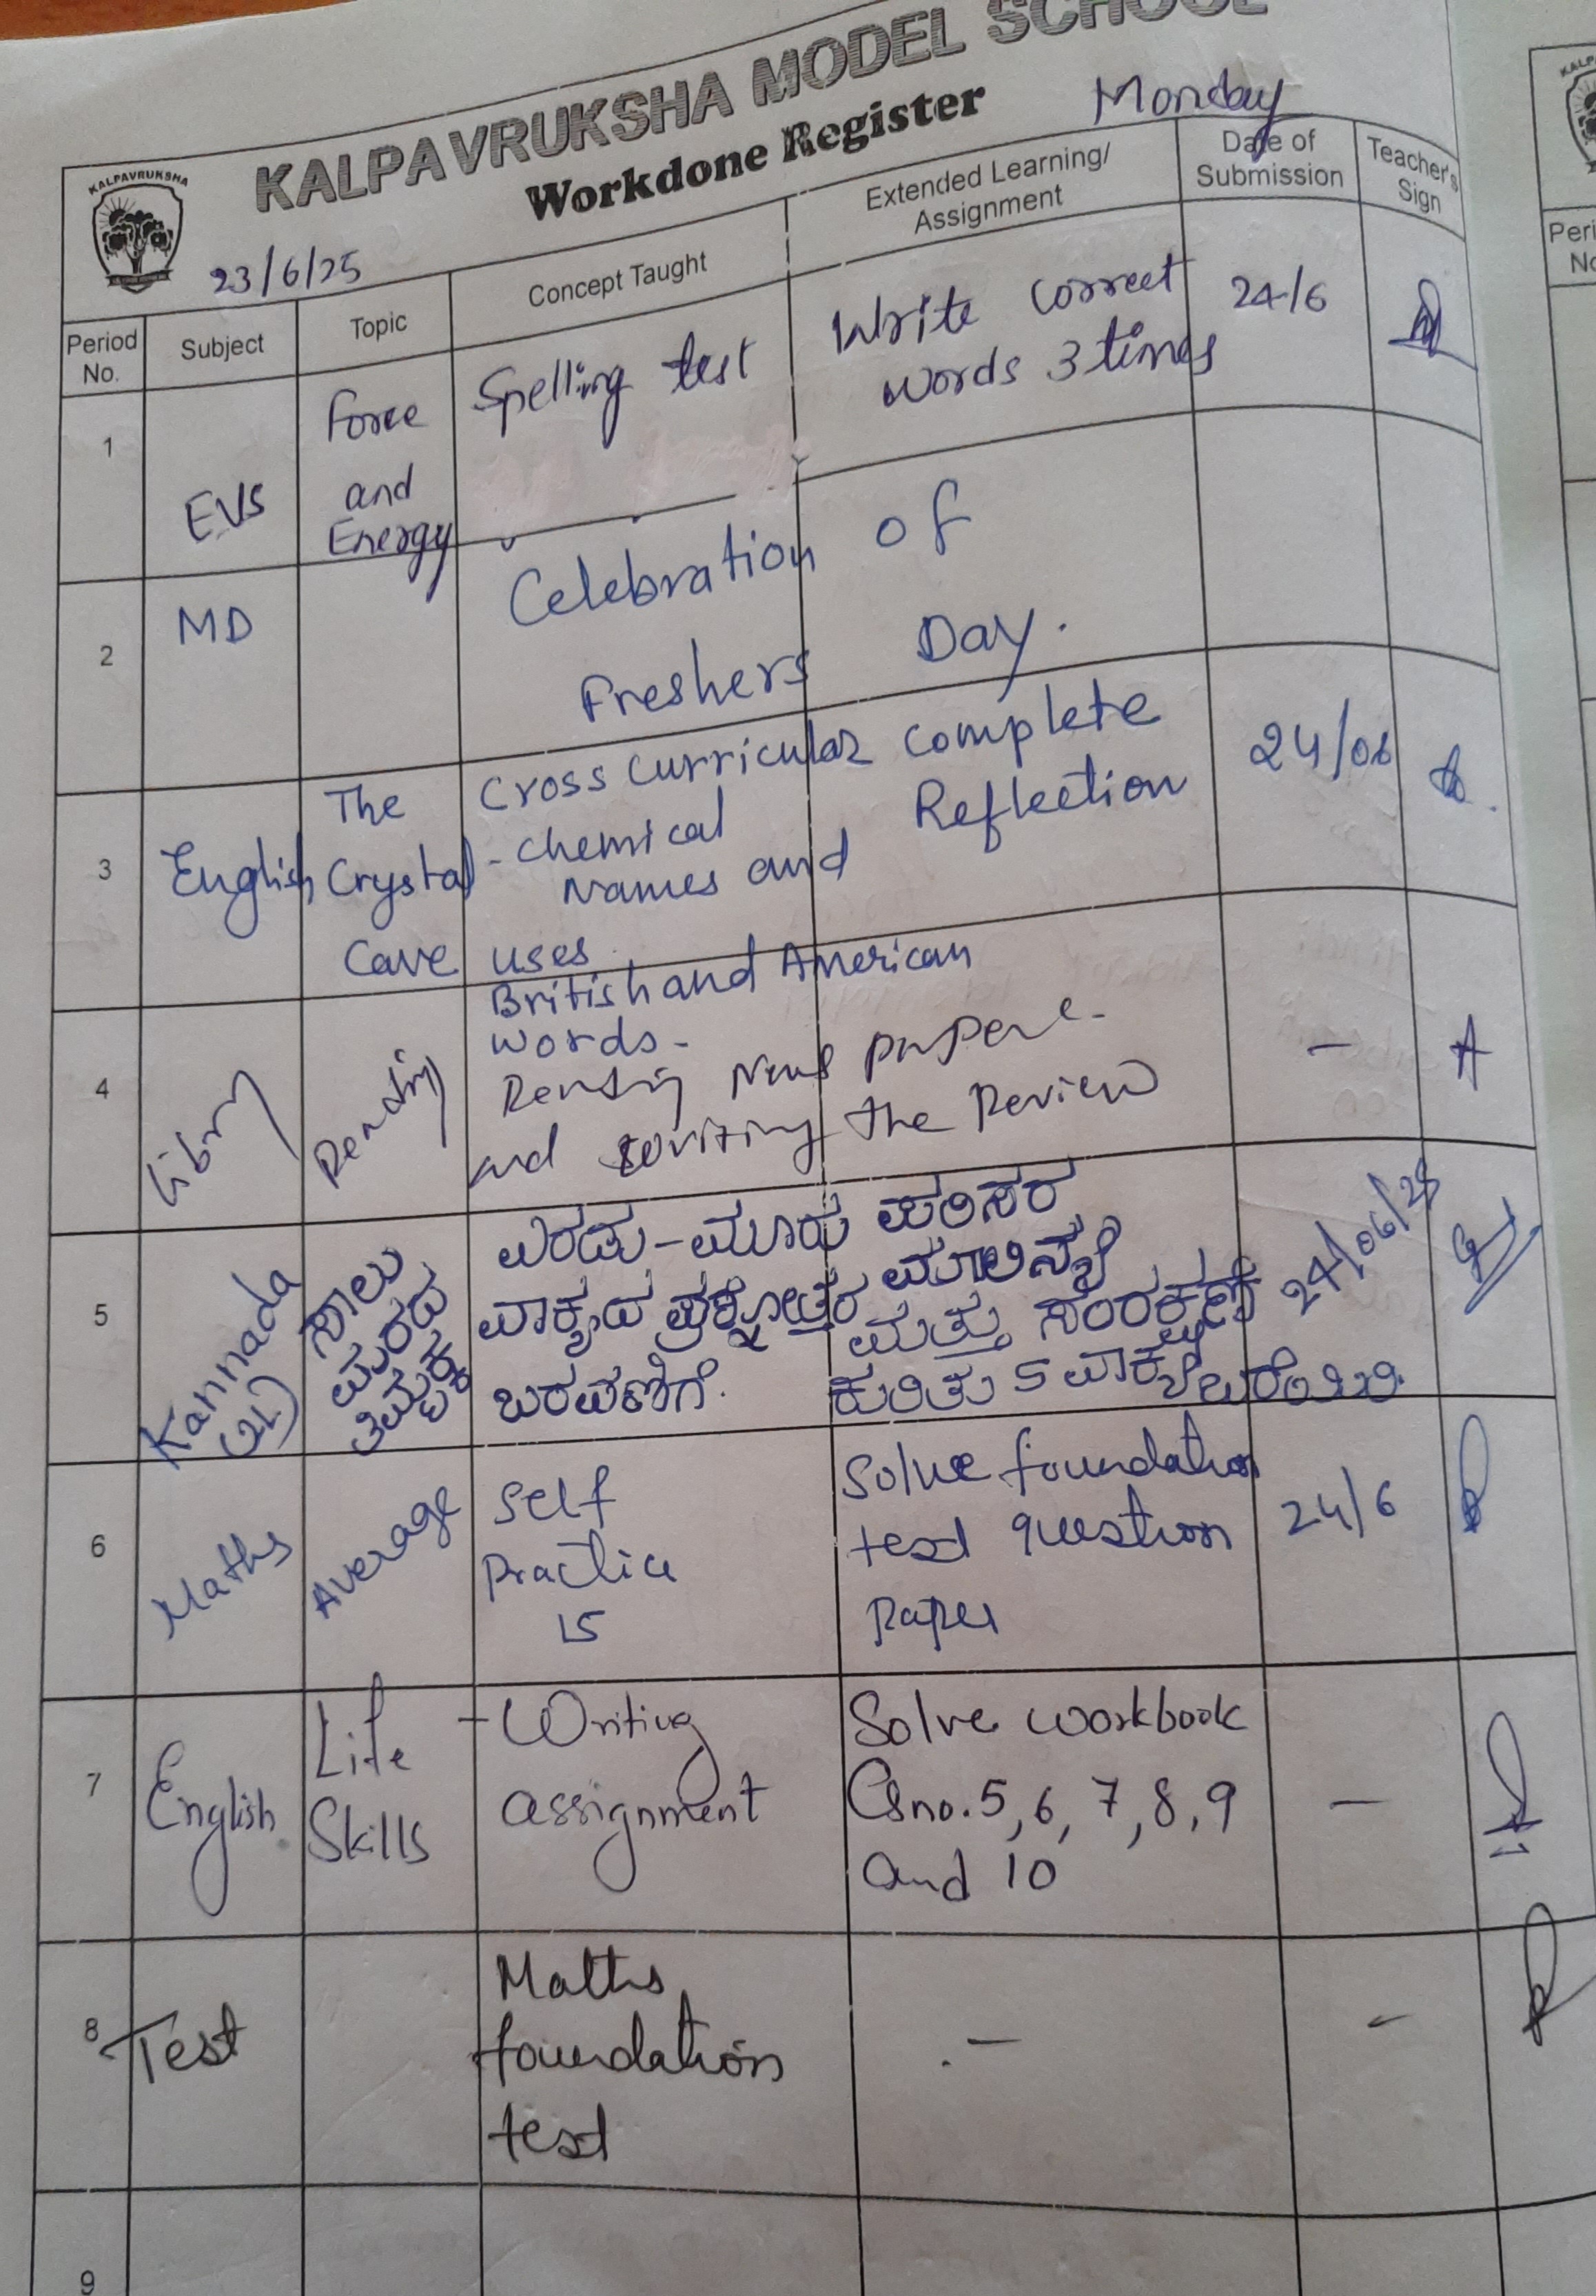 KALPAVRUKSHA MODEL SCHOOL
Workdone Register
Monday
KALPAVRUKSHA
23/6/25
Period No.
Subject
Topic
Concept Taught
Extended Learning/
Assignment
Date of
Submission
Teacher's
Sign
1
EVS
Force
and
Energy
Spelling test
Write correct
words 3 times
24/6
2
MD
Celebration of
Freshers Day.
3
English
The
Crystal
Cave
Cross curricular
- chemical
Names and
uses
British and American
words-
complete
Reflection
24/06
4
Library
Reading
Reading News paper
and writing the Review
-
A
5
Kannada
(2L)
ಸಾಲು
ಮರದ
ತಿಮ್ಮಕ್ಕ
ಎರಡು-ಮೂರು
ವಾಕ್ಯದ ಪ್ರಶ್ನೋತ್ತರ
ಬರವಣಿಗೆ.
ಪರಿಸರ
ಮಾಲಿನ್ಯ
ಮತ್ತು ಸಂರಕ್ಷಣೆ
ಕುರಿತು 5 ವಾಕ್ಯ
24/06/25
6
Maths
Average
Self
Practice
15
Solve foundation
test question
paper
24/6
7
English
Life
Skills
- Writing
assignment
Solve workbook
Qsno. 5, 6, 7, 8, 9
and 10
-
8
Test
Maths
foundation
test
-
-
9
Peri
No